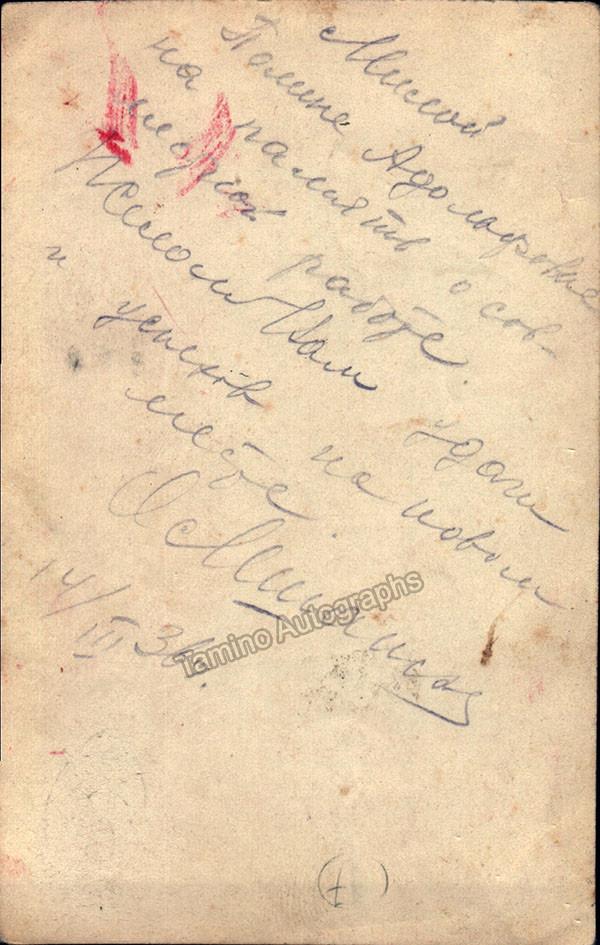 Милой
Полине Адольфовне
на память о сов-
местной работе.
Желаю Вам удачи
и успехов на новом
месте.
14/III 36.
Tamino Autographs
(1)